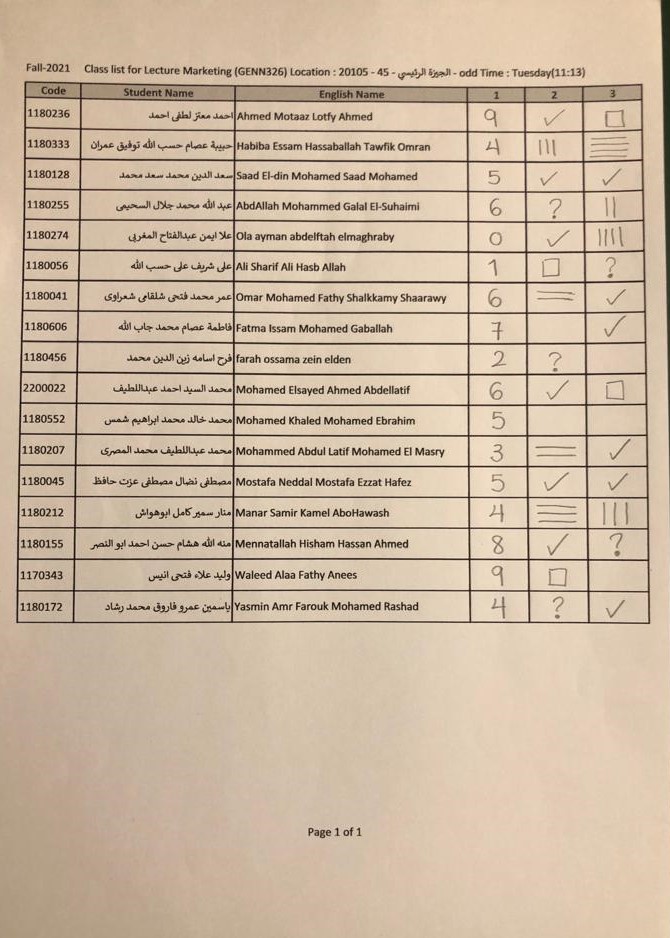 Fall-2021 Class list for Lecture Marketing (GENN326) Location : 20105 - 45 - الجيزة الرئيسي - odd Time : Tuesday(11:13)
Code Student Name English Name 1 2 3
1180236 احمد معتز لطفى احمد Ahmed Motaaz Lotfy Ahmed 9 ✓ □
1180333 حبيبة عصام حسب الله توفيق عمران Habiba Essam Hassaballah Tawfik Omran 4 ||| ☰
1180128 سعد الدين محمد سعد محمد Saad El-din Mohamed Saad Mohamed 5 ✓ ✓
1180255 عبد الله محمد جلال السحيمى AbdAllah Mohammed Galal El-Suhaimi 6 ? ||
1180274 علا ايمن عبدالفتاح المغربي Ola ayman abdelftah elmaghraby 0 ✓ ||||
1180056 على شريف على حسب الله Ali Sharif Ali Hasb Allah 1 □ ?
1180041 عمر محمد فتحى شلقامى شعراوى Omar Mohamed Fathy Shalkkamy Shaarawy 6 = ✓
1180606 فاطمة عصام محمد جاب الله Fatma Issam Mohamed Gaballah 7 ✓
1180456 فرح اسامه زين الدين محمد farah ossama zein elden 2 ?
2200022 محمد السيد احمد عبداللطيف Mohamed Elsayed Ahmed Abdellatif 6 ✓ □
1180552 محمد خالد محمد ابراهيم شمس Mohamed Khaled Mohamed Ebrahim 5
1180207 محمد عبداللطيف محمد المصرى Mohammed Abdul Latif Mohamed El Masry 3 = ✓
1180045 مصطفى نضال مصطفى عزت حافظ Mostafa Neddal Mostafa Ezzat Hafez 5 ✓ ✓
1180212 منار سمير كامل ابوهواش Manar Samir Kamel AboHawash 4 ☰ |||
1180155 منه الله هشام حسن احمد ابو النصر Mennatallah Hisham Hassan Ahmed 8 ✓ ?
1170343 وليد علاء فتحى انيس Waleed Alaa Fathy Anees 9 □
1180172 ياسمين عمرو فاروق محمد رشاد Yasmin Amr Farouk Mohamed Rashad 4 ? ✓
Page 1 of 1